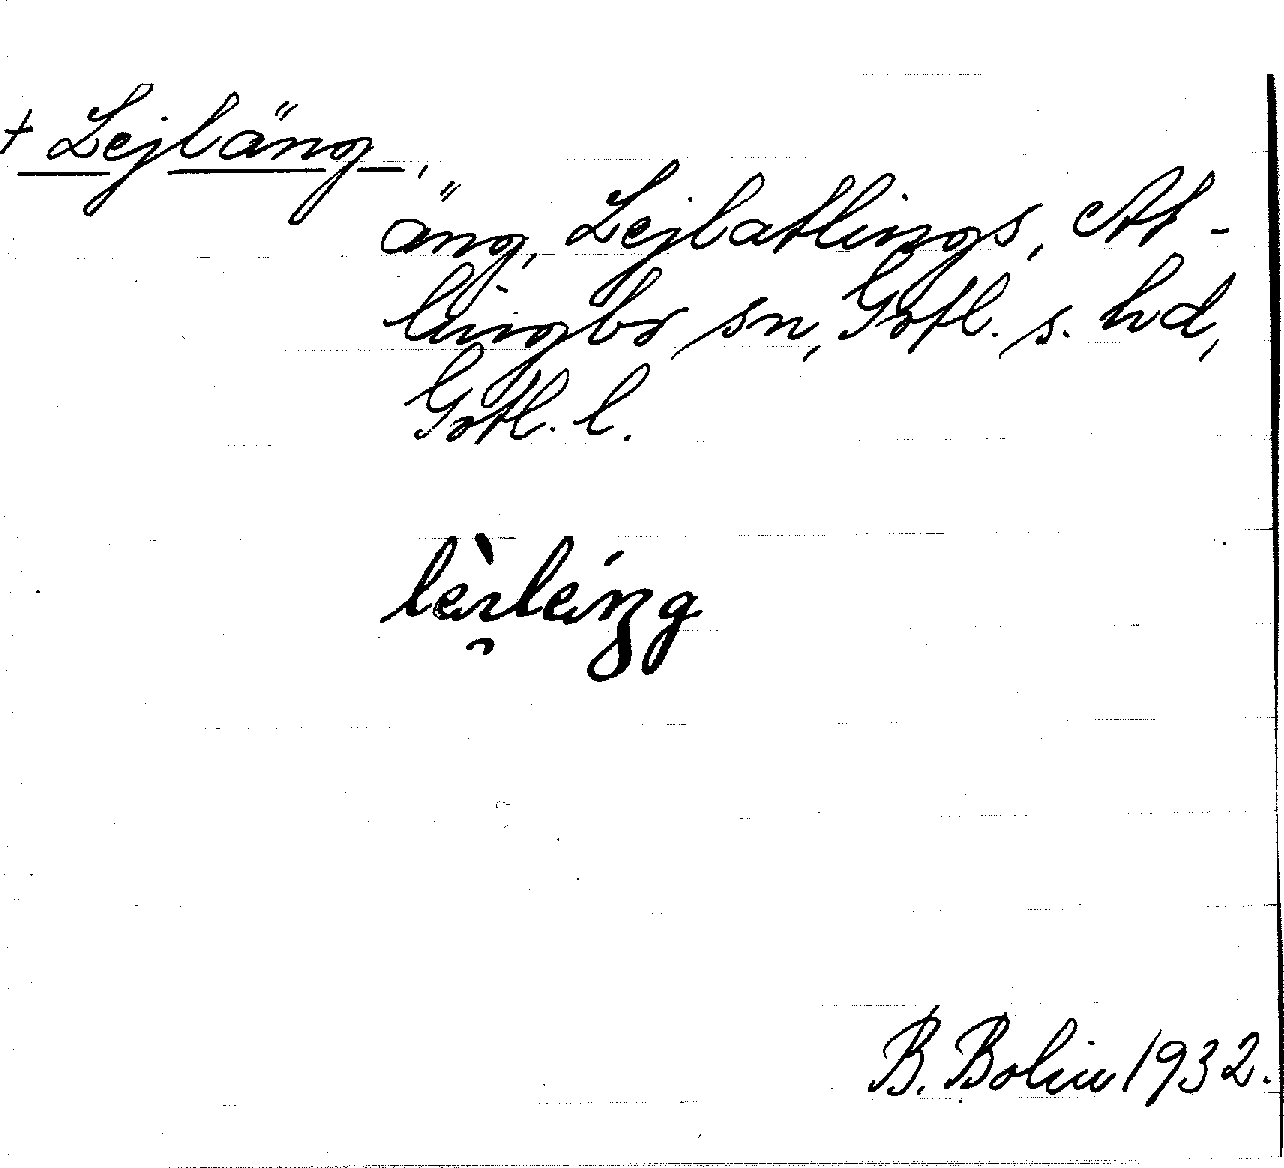 + Lejläng,
äng, Lejlatlings, At-
lingbo sn, Gotl. s. hd,
Gotl. l.
B. Bolin 1932.